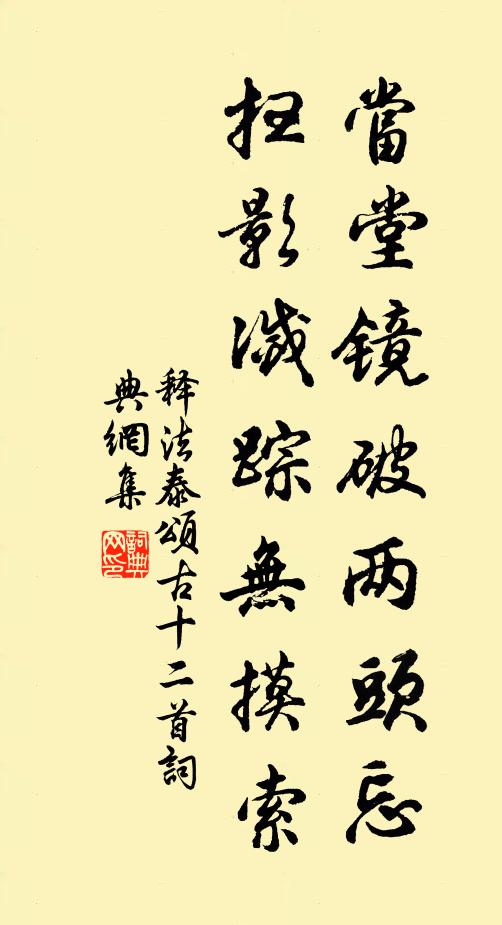 當堂鏡破两頭忘
扫影滅踪無摸索
释法泰頌古十二首詞
典網集
詞典网印